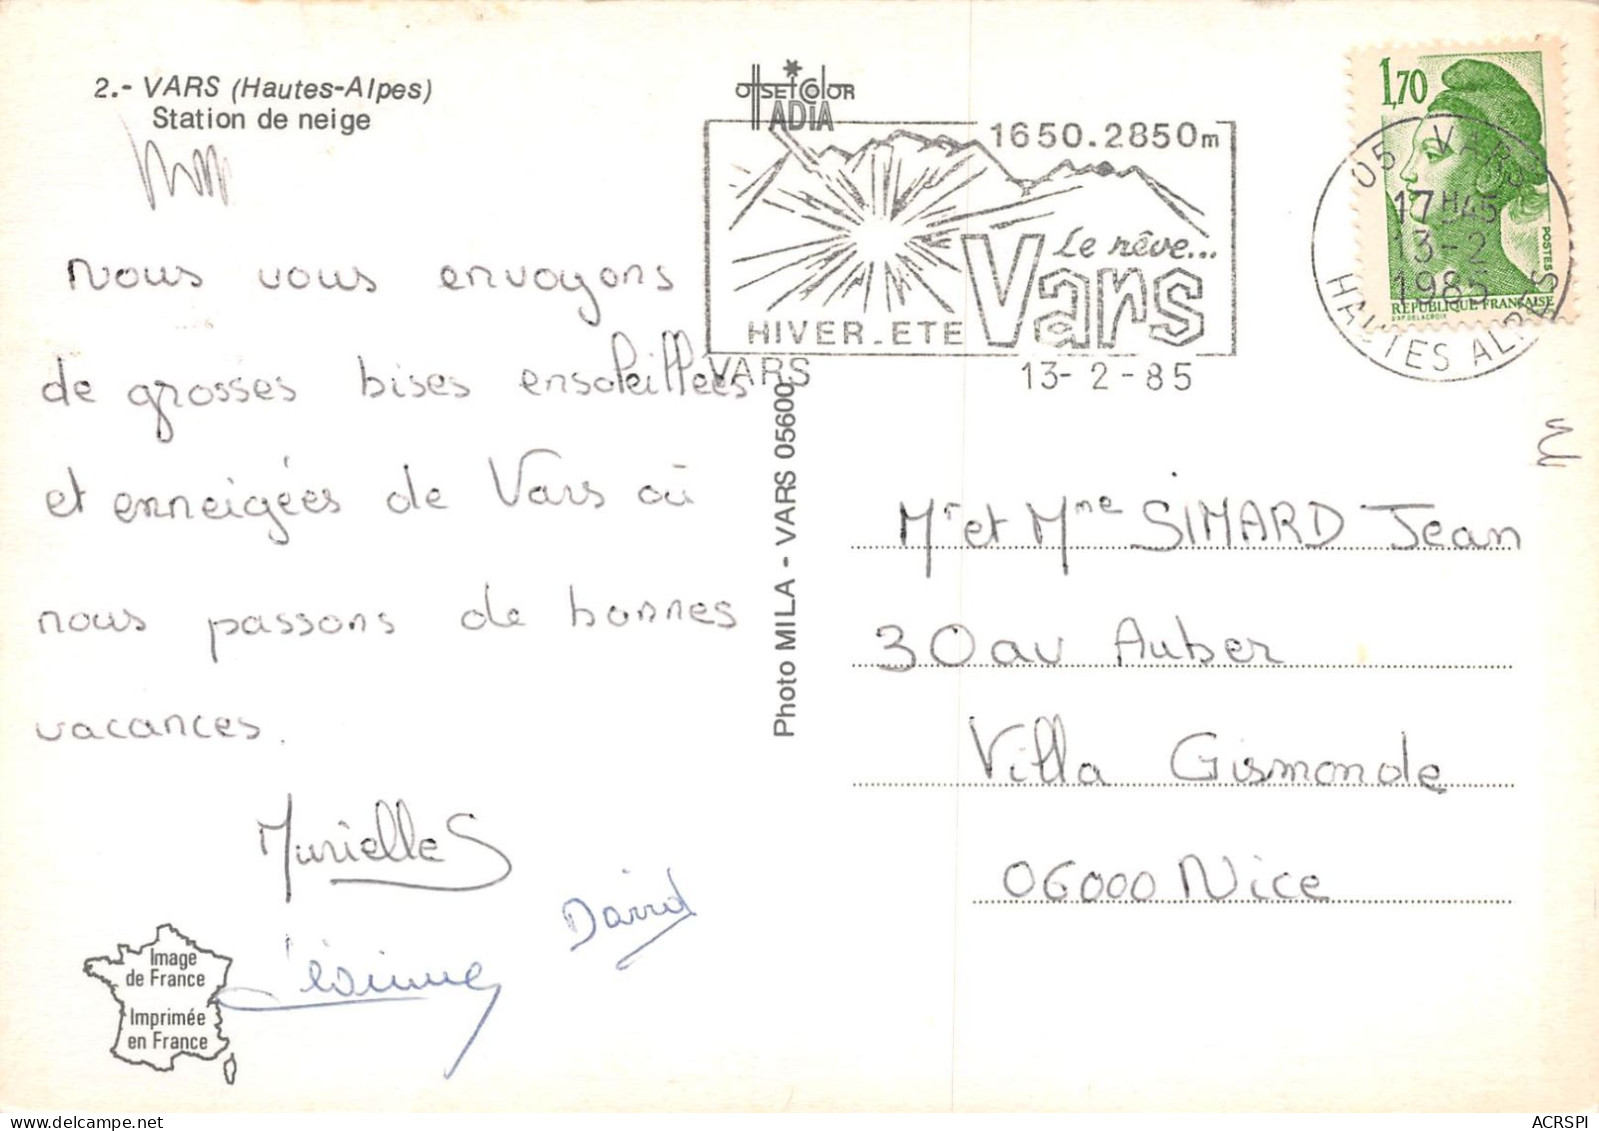 2.- VARS (Hautes-Alpes)
Station de neige
Nous vous envoyons
de grosses bises ensoleillées
et enneigées de Vars où
nous passons de bonnes
vacances.
Murielle S
David
Image
de France
Imprimée
en France
OffsetColor
ADIA
1650.2850m
Le rêve...
Vars
HIVER_ETE
VARS
13-2-85
Photo MILA - VARS 05600
1,70
POSTES
REPUBLIQUE FRANÇAISE
D'AP. DELACROIX
05 VARS
17H45
13-2
1985
HAUTES ALPES
Mr et Mme SIMARD Jean
30 av Auber
Villa Gismonde
06000 Nice
ACRSPI